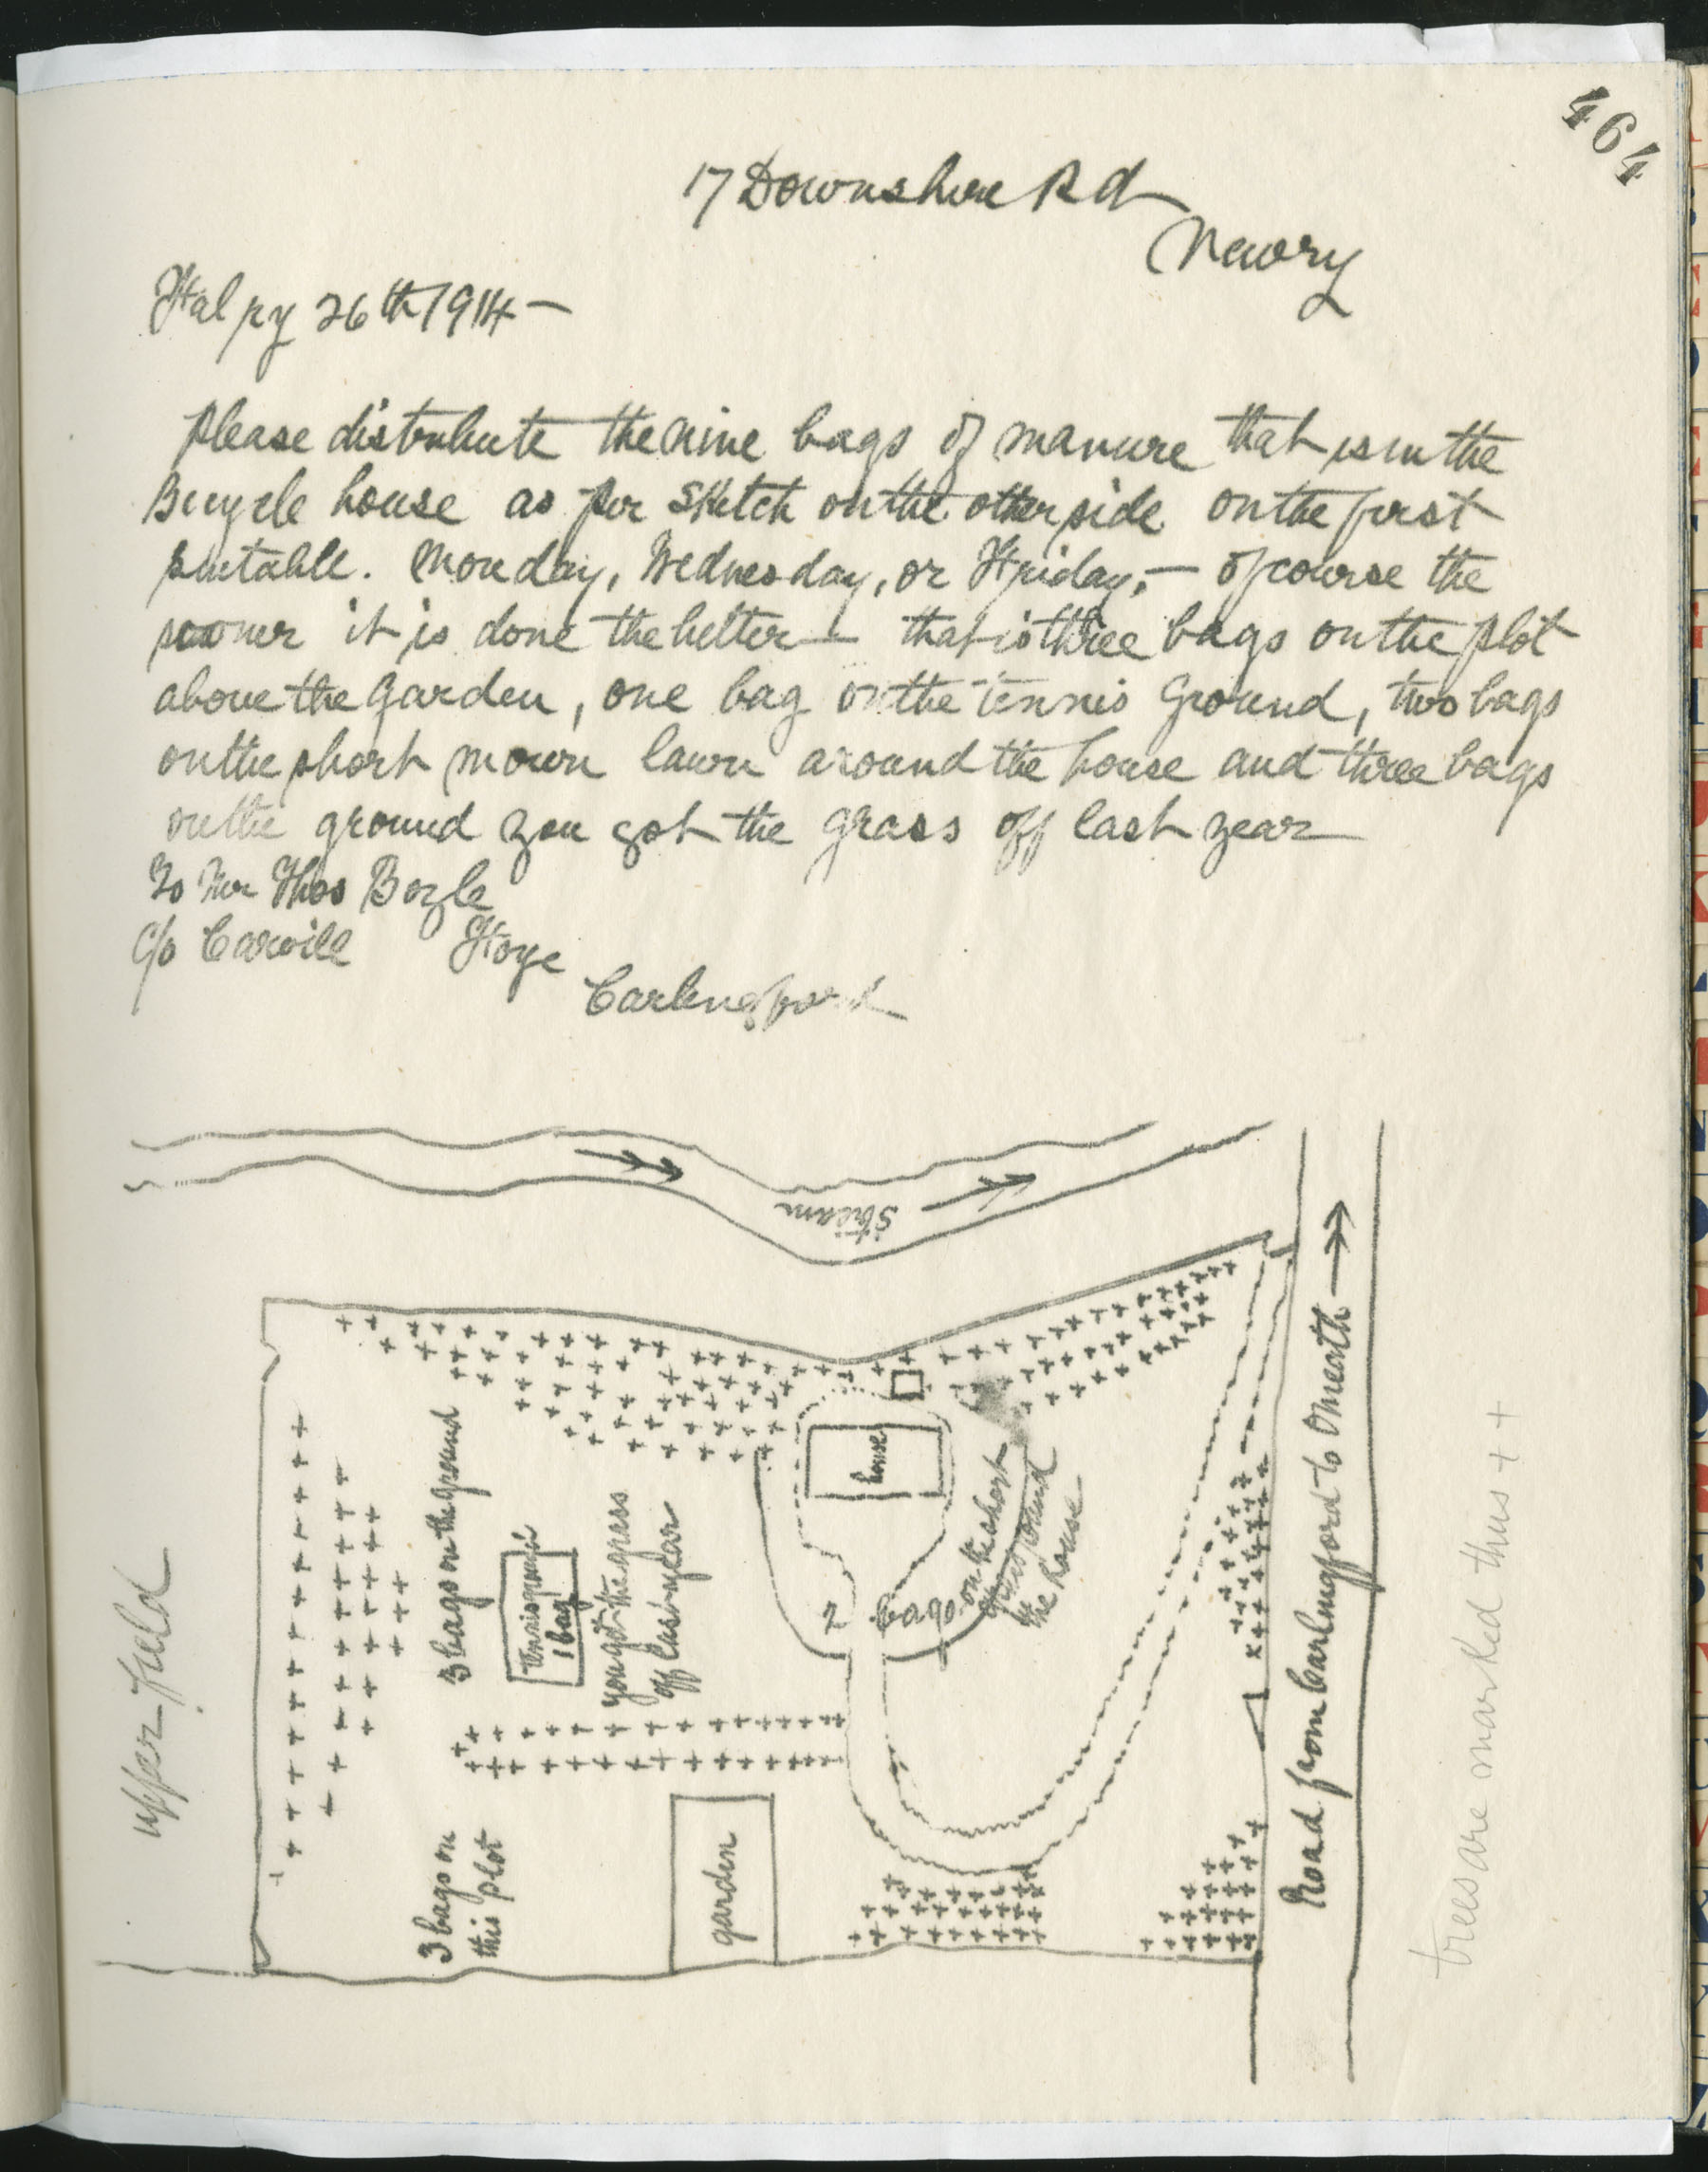 464
17 Downshire Rd
Newry
26th 1914 –
Please distribute the nine bags of manure that is in the
Bicycle house as per sketch on the other side on the first
suitable. Monday, Wednesday, or Friday, – of course the
sooner it is done the better – that is three bags on the plot
above the garden, one bag on the tennis ground, two bags
on the short mown lawn around the house and three bags
on the ground you got the grass off last year
To Mr Thos Boyle
c/o Carvill
Carlingford
Stream
house
2 bags on the short
round
the house
3 bags on the ground
you got the grass
off last year
Tennis ground
1 bag
Upper Field
3 bags on
this plot
garden
Road from Carlingford to Omeath
trees are marked thus + +